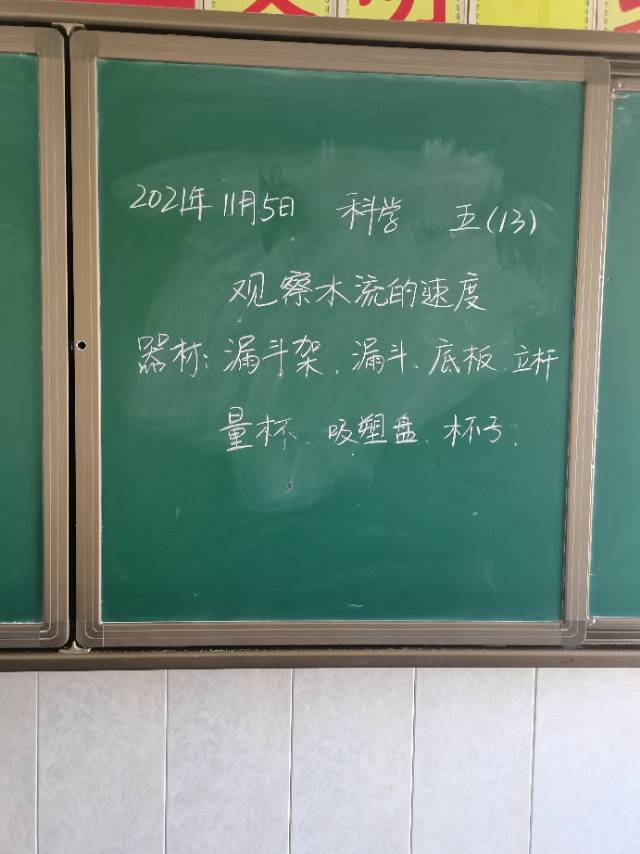 2021年11月5日 科学 五(13)
观察水流的速度
器材：漏斗架、漏斗、底板、立杆
量杯、吸塑盘、杯子、